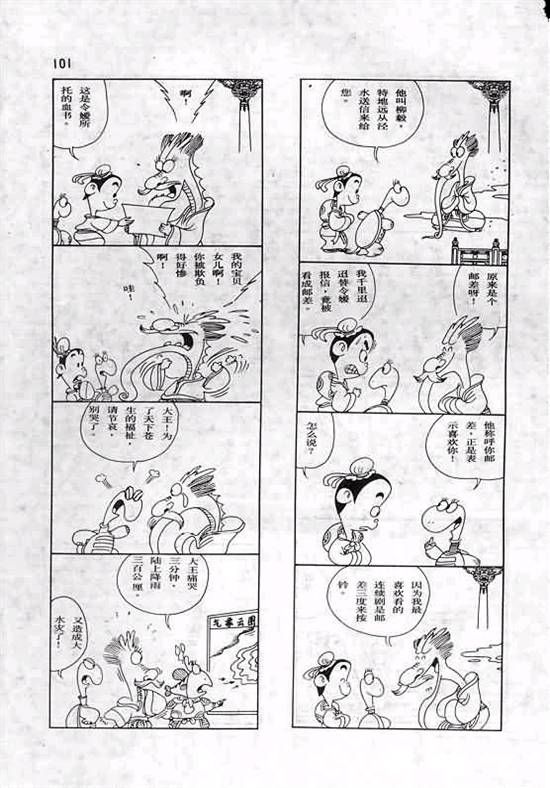 101
他叫柳毅，
特地远从泾
水送信来给
您。
原来是个
邮差呀！
我千里迢
迢替令嫒
报信，竟被
看成邮差。
他称呼你邮
差，正是表
示喜欢你！
怎么说？
因为我最
喜欢看的
连续剧是邮
差三度来按
铃。
啊！
这是令嫒所
托的血书。
我的宝贝
女儿啊！
你被欺负
得好惨
啊！
哇！
大王！为
了天下苍
生的福祉，
请节哀，
别哭了。
大王痛哭
三分钟，
陆上降雨
三百公厘。
气象云图
又造成大
水灾了！